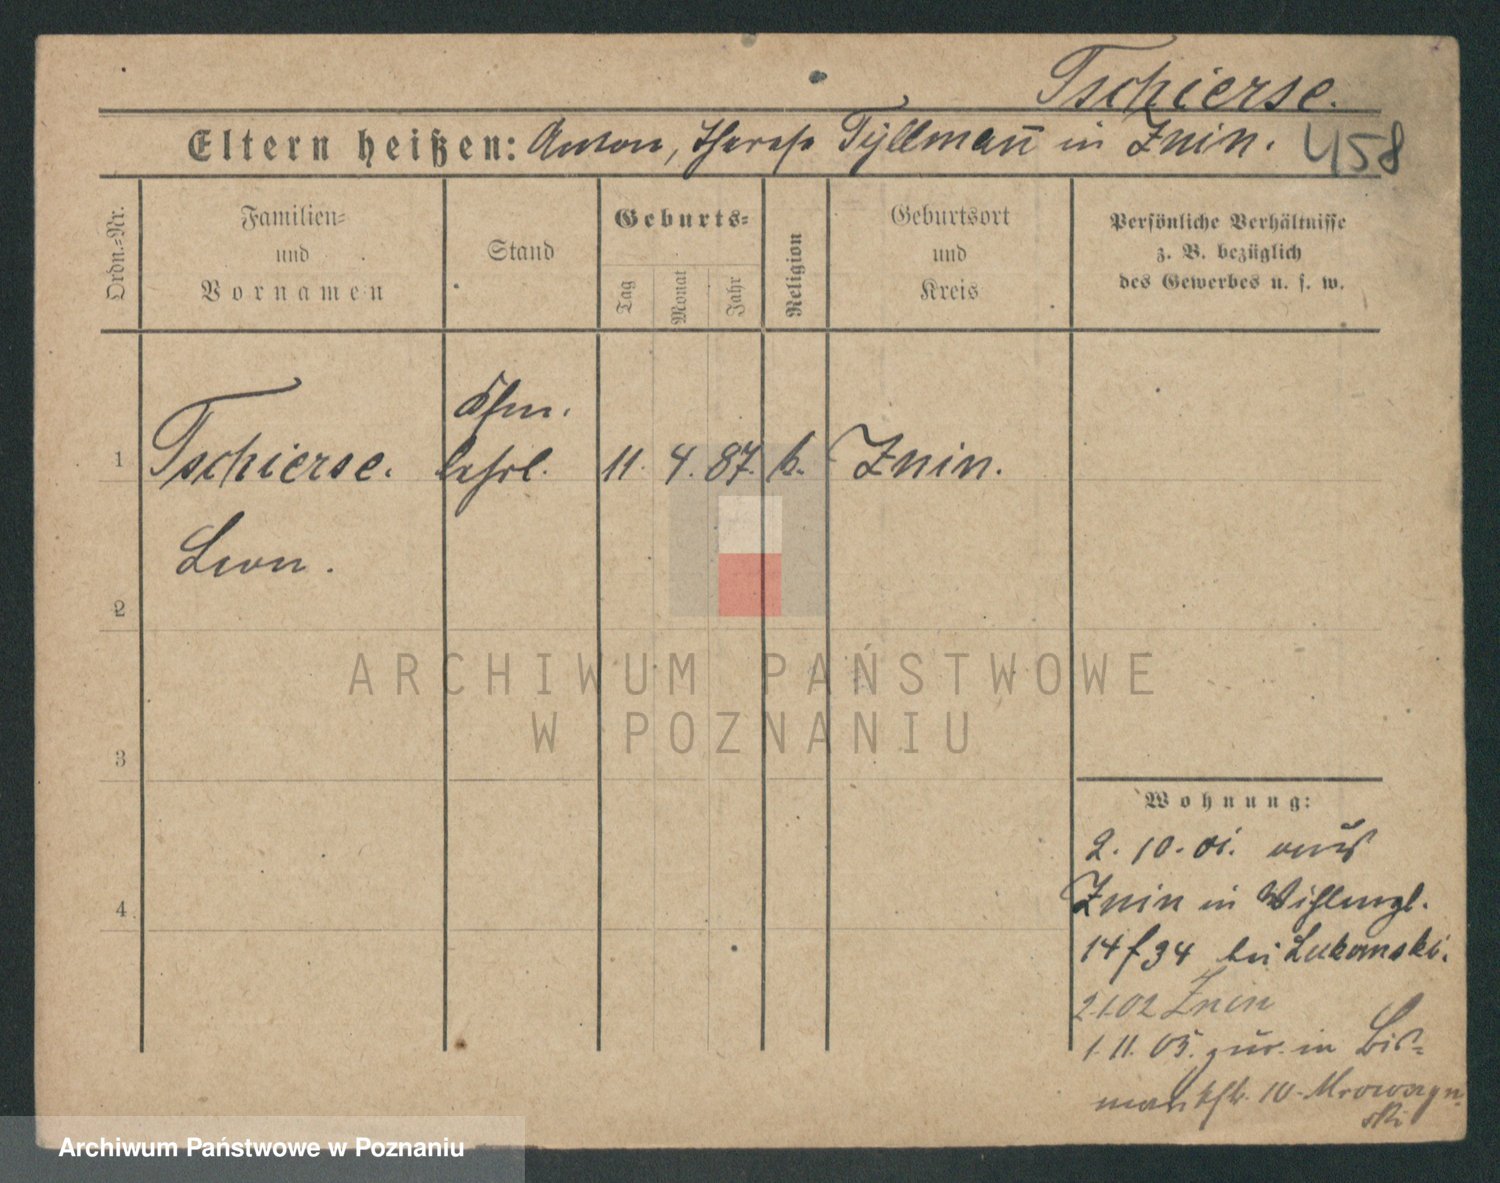 Tschierse.
Eltern heißen: Anton, Therese Tyllmann in Znin. 458
Ordn.-Nr.
Familien-
und
Vornamen
Stand
Geburts-
Tag
Monat
Jahr
Religion
Geburtsort
und
Kreis
Persönliche Verhältnisse
z. B. bezüglich
des Gewerbes u. s. w.
1 Tschierse. lehrl. 11. 4. 87. k. Znin.
Leon.
2
3
4
ARCHIWUM PAŃSTWOWE
W POZNANIU
Wohnung:
2. 10. 01. aus
Znin in
14 f 34 bei Lukomski.
2.1.02 Znin
1. 11. 05. zur. in Bis-
10
ski
Archiwum Państwowe w Poznaniu